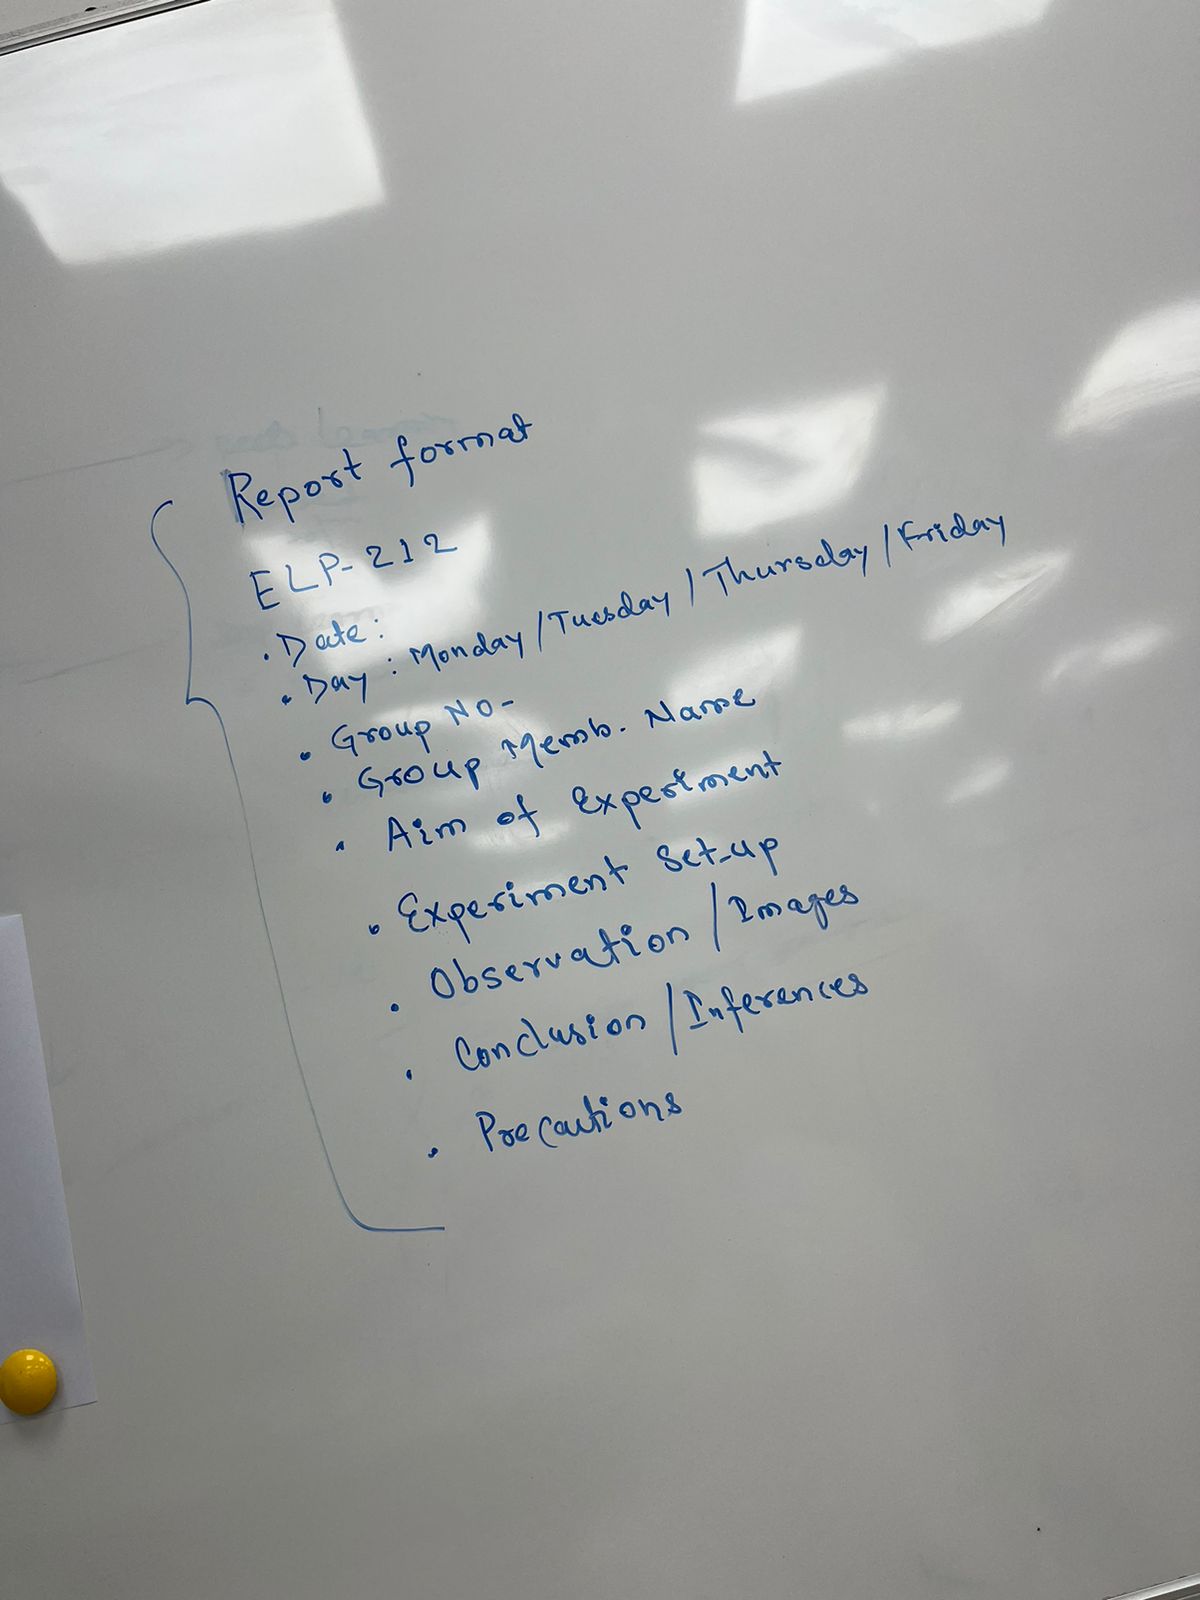 Report format
ELP-212
. Date :
. Day : Monday / Tuesday / Thursday / Friday
. Group No-
. Group Memb. Name
. Aim of Experiment
. Experiment Set-up
. Observation / Images
. Conclusion / Inferences
. Precautions